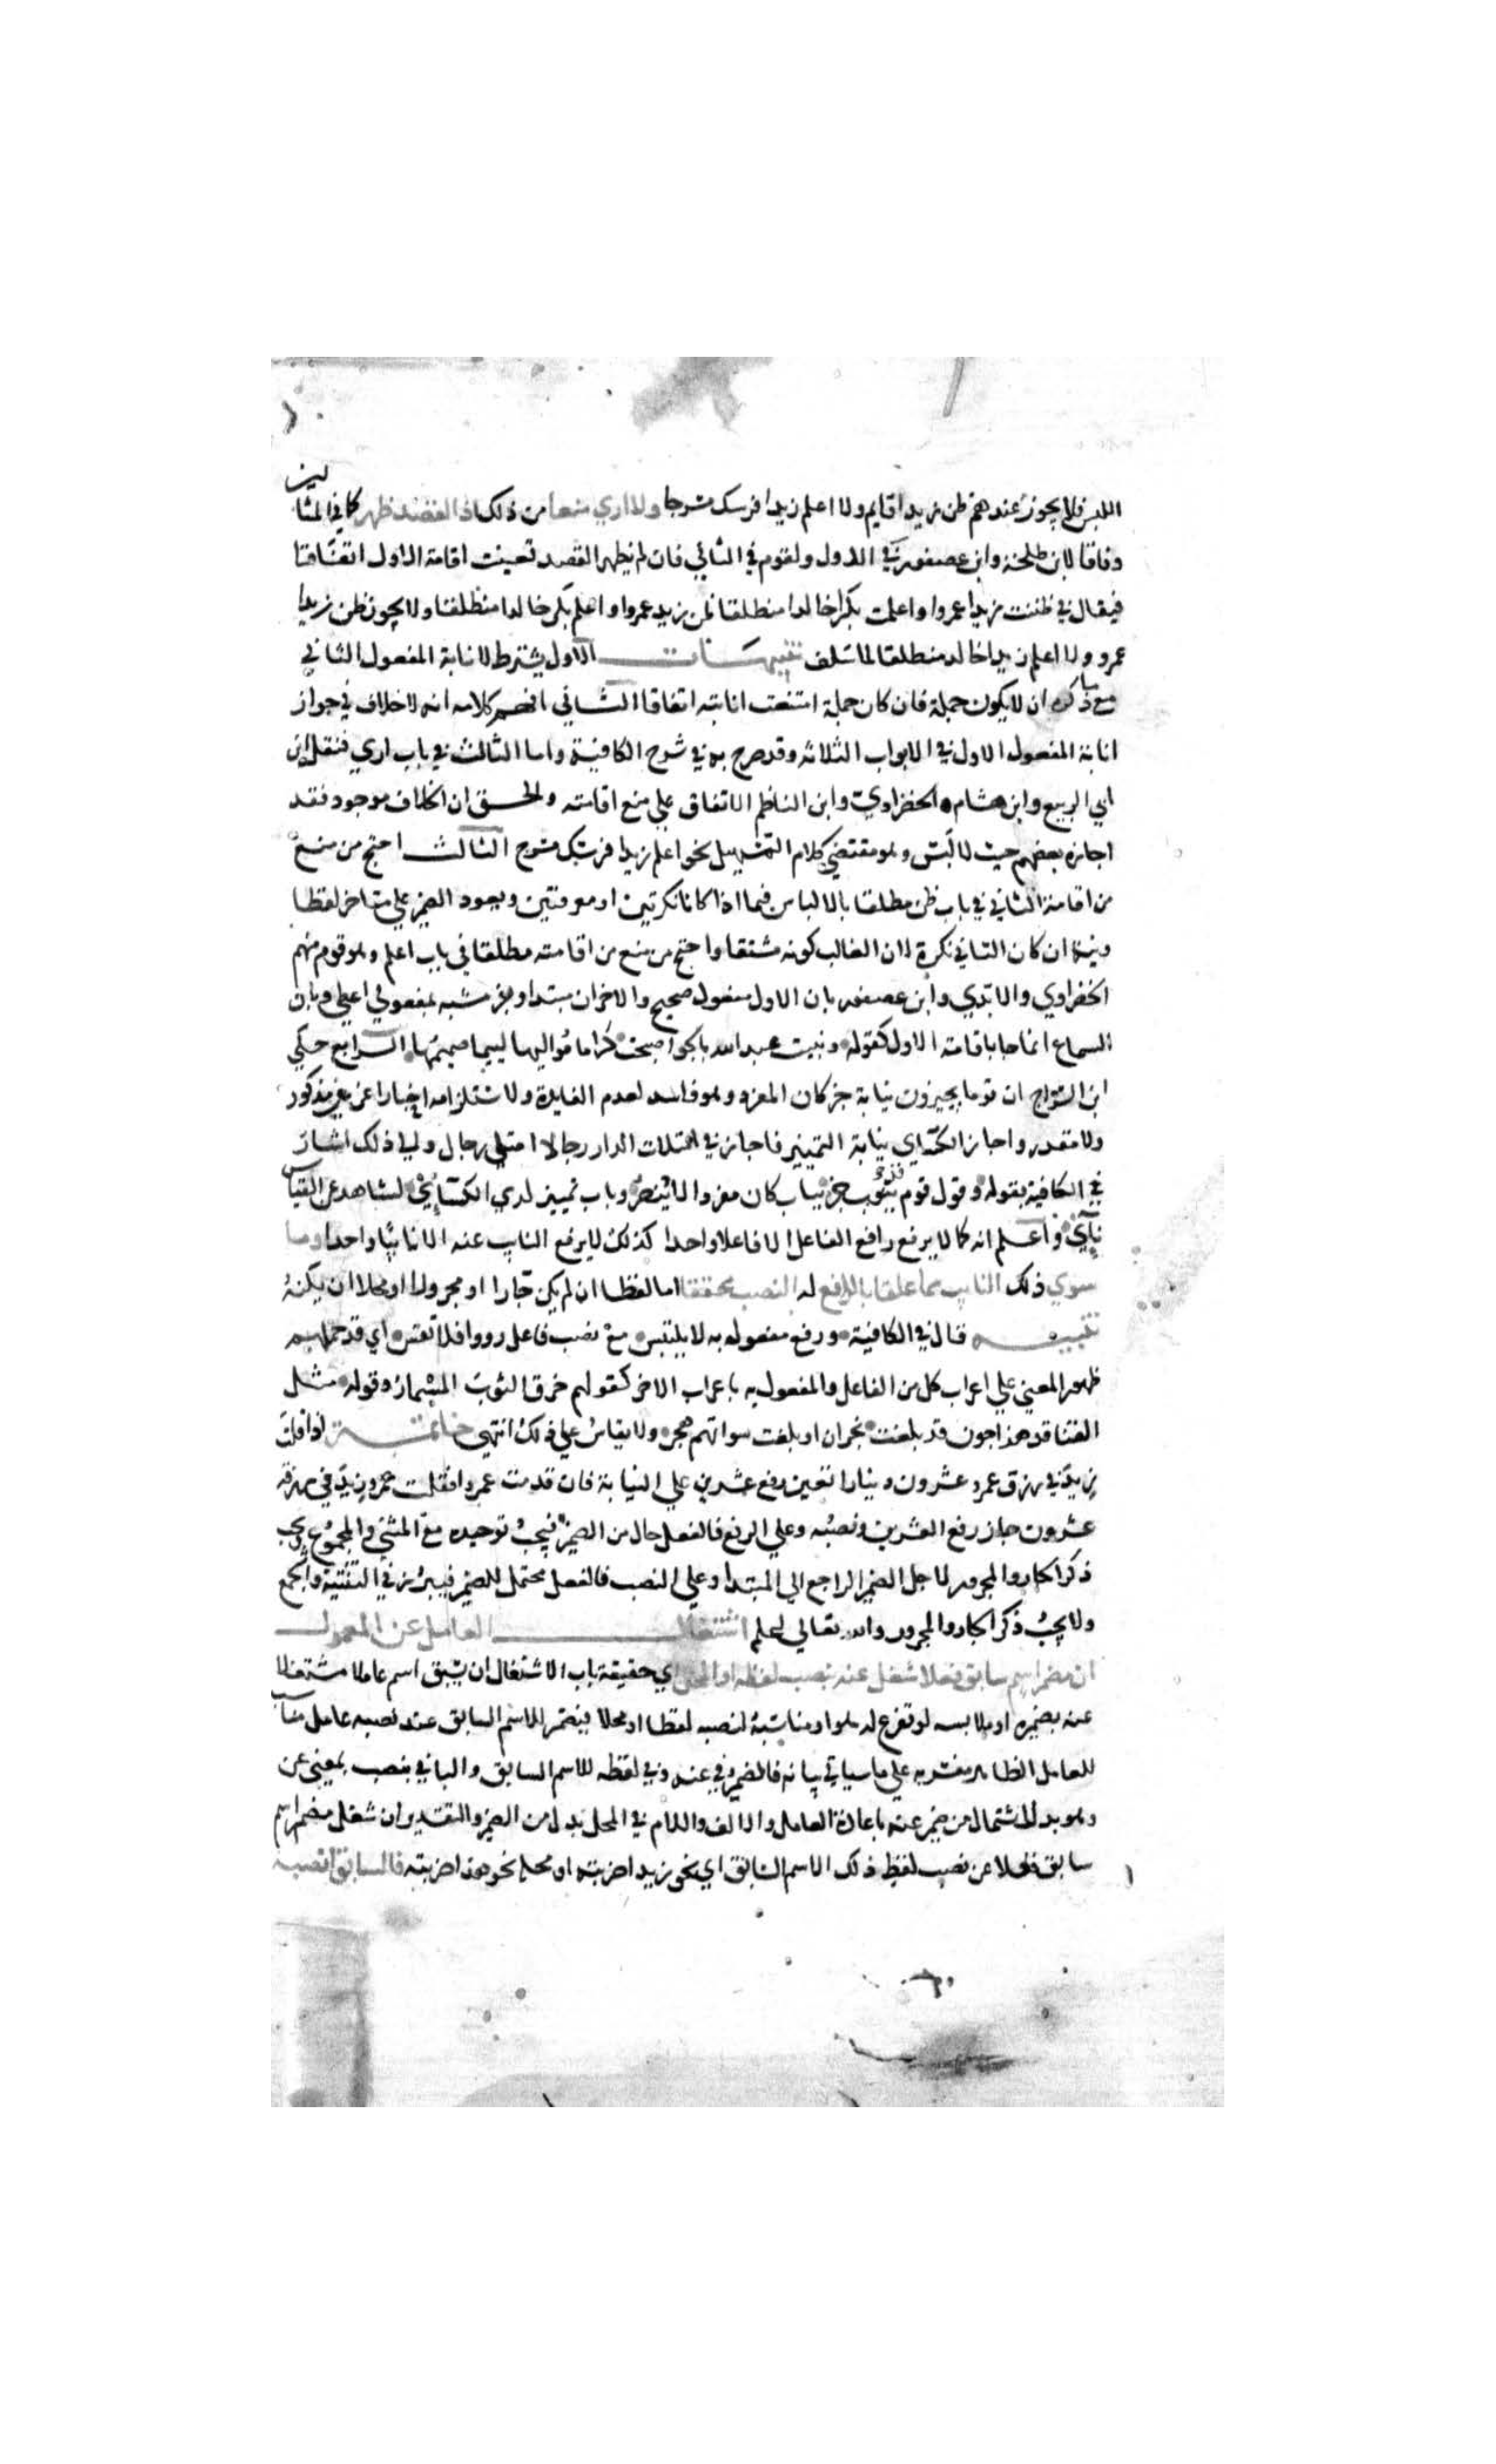 اللبس فلا يجوز عندهم ظن زيدا قايم ولا اعلم زيدا فرسك مسرجا ولا اري منعا من ذلك اذا القصد ظهر كما في المثالين
وفاقا لابن طلحة وابن عصفور في الاول ولقوم في الثاني فان لم يظهر القصد تعينت اقامة الاول اتفاقا
فيقال في ظننت زيدا عمروا واعلمت بكرا خالدا منطلقا ظن زيد عمروا واعلم بكر خالدا منطلقا ولا يجوز ظن زيدا
عمرو ولا اعلم زيدا خالد منطلقا لما سلف تنبيهات الاول يشترط لانابة المفعول الثاني
مع ما ذكره ان لا يكون جملة فان كان جملة امتنعت انابته اتفاقا الثاني افهم كلامه انه لا خلاف في جواز
انابة المفعول الاول في الابواب الثلاثة وقد صرح به في شرح الكافية واما الثالث في باب اري فنقل ابن
ابي الربيع وابن هشام الخضراوي وابن الناظم الاتفاق علي منع اقامته والحق ان الخلاف موجود فقد
اجازه بعضهم حيث لا لبس وهو مقتضي كلام التسهيل نحو اعلم زيدا فرسك مسرج الثالث احتج من منع
من اقامة الثاني في باب ظن مطلقا بالالباس فيما اذا كانا نكرتين او معرفتين وبعود الضمير علي متاخر لفظا
ورتبة ان كان الثاني نكرة لان الغالب كونه مشتقا واحتج من منع من اقامته مطلقا في باب اعلم وهو قوم منهم
الخضراوي والابدي وابن عصفور بان الاول مفعول صحيح والاخران مبتدا وخبر مشبه بمفعولي اعطي وبان
السماع انما جا باقامة الاول كقوله ونبيت عبد الله بالجو اصبحت كراما مواليها ليما صميمها الرابع حكي
ابن السراج ان قوما يجيزون نيابة خبر كان المفرد وهو فاسد لعدم الفايدة ولاستلزامه اخبارا عن غير مذكور
ولا مقدر واجاز الكساي نيابة التمييز فاجاز في امتلات الدار رجالا امتلي رجال والي ذلك اشار
في الكافية بقوله وقول قوم قد ينوب خبر بباب كان مفردا لا ينصر وباب تمييز لدي الكسائي لشاهد عن القياس
نآئي واعلم انه كما لا يرفع رافع الفاعل الا فاعلا واحدا كذلك لا يرفع النايب عنه الا نايبا واحدا وما
سوي ذلك النايب مما علقا بالرافع له النصب محققا اما لفظا ان لم يكن جارا او مجرولا او محلا ان يكنه
تنبيه قال في الكافية ورفع مفعول به لا يلتبس مع نصب فاعل رووا فلا تقس اي قد حملهم
ظهور المعني علي اعراب كل من الفاعل والمفعول به باعراب الاخر كقولهم خرق الثوب المسمار وقوله مثل
القنافذ هداجون قد بلغت نجران او بلغت سواتهم هجر ولا يقاس علي ذلك انتهي خاتمة اذا قلت
زيد في رزق عمرو عشرون دينارا تعين رفع عشرين علي النيابة فان قدمت عمروا فقلت عمرو زيد في رزقه
عشرون جاز رفع العشرين ونصبه وعلي الرفع فالفعل خال من الضمير فيجب توحيده مع المثني والمجموع ويجب
ذكر الجار والمجرور لاجل الضمير الراجع الي المبتدا وعلي النصب فالفعل محتمل للضمير فيبرز في التثنية والجمع
ولا يجب ذكر الجار والمجرور والله تعالي اعلم اشتغال العامل عن المعمول
ان مضمر اسم سابق فعلا شغل عنه بنصب لفظه او المحل اي حقيقة باب الاشتغال ان يسبق اسم عاملا مشتغلا
عنه بضميره او ملابسه لو تفرغ له هو او مناسبه لنصبه لفظا او محلا فيضمر للاسم السابق عند نصبه عامل مناسب
للعامل الظاهر مفسر به علي ما سياتي بيانه فالضمير في عنه وفي لفظه للاسم السابق والبا في بنصب بمعني عن
وهو بدل اشتمال من ضمير عنه باعادة العامل والالف واللام في المحل بدل من الضمير والتقدير ان شغل مضمر اسم
سابق فعلا عن نصب لفظ ذلك الاسم السابق اي نحو زيدا ضربته او محله نحو هذا ضربته فالسابق انصبه